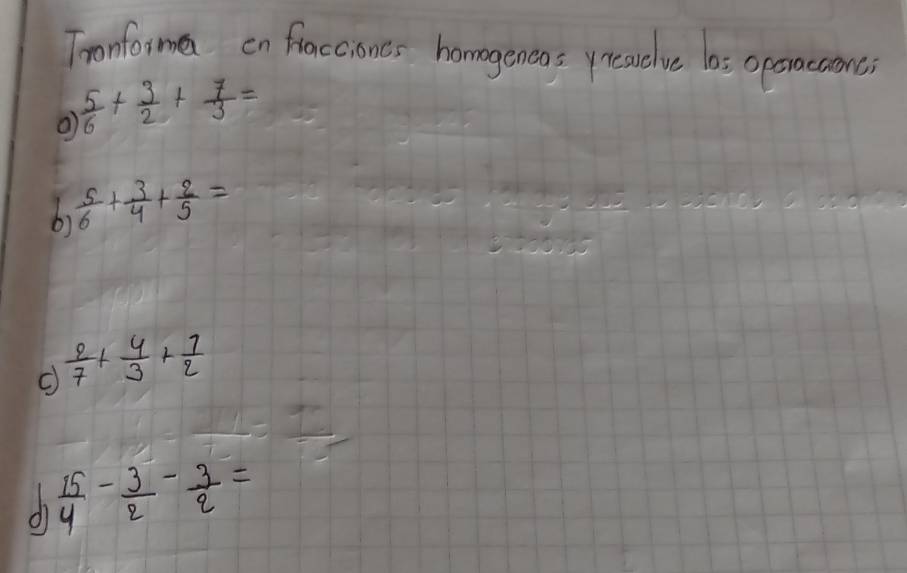 Tranforma en fracciones homogeneas y resuelve las operaciones
a) 5/6 + 3/2 + 7/3 =
b) 5/6 + 3/4 + 2/5 =
c) 2/7 + 4/3 + 7/2
d) 15/4 - 3/2 - 3/2 =